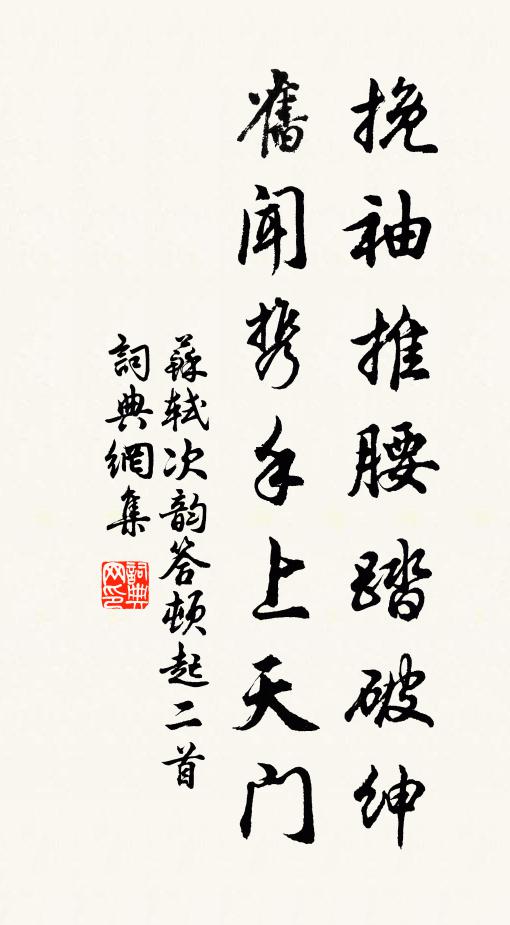 挽袖推腰踏破紳
舊聞携手上天门
蘇軾次韵答頓起二首
詞典網集
詞典网印